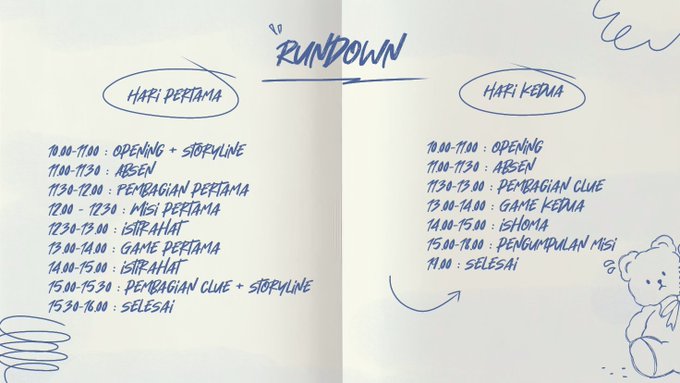 RUNDOWN
HARI PERTAMA
10.00-11.00 : OPENING + STORYLINE
11.00-11.30 : ABSEN
11.30-12.00 : PEMBAGIAN PERTAMA
12.00 - 12.30 : MISI PERTAMA
12.30-13.00 : ISTIRAHAT
13.00-14.00 : GAME PERTAMA
14.00-15.00 : ISTIRAHAT
15.00-15.30 : PEMBAGIAN CLUE + STORYLINE
15.30-16.00 : SELESAI
HARI KEDUA
10.00-11.00 : OPENING
11.00-11.30 : ABSEN
11.30-13.00 : PEMBAGIAN CLUE
13.00-14.00 : GAME KEDUA
14.00-15.00 : ISHOMA
15.00-18.00 : PENGUMPULAN MISI
19.00 : SELESAI